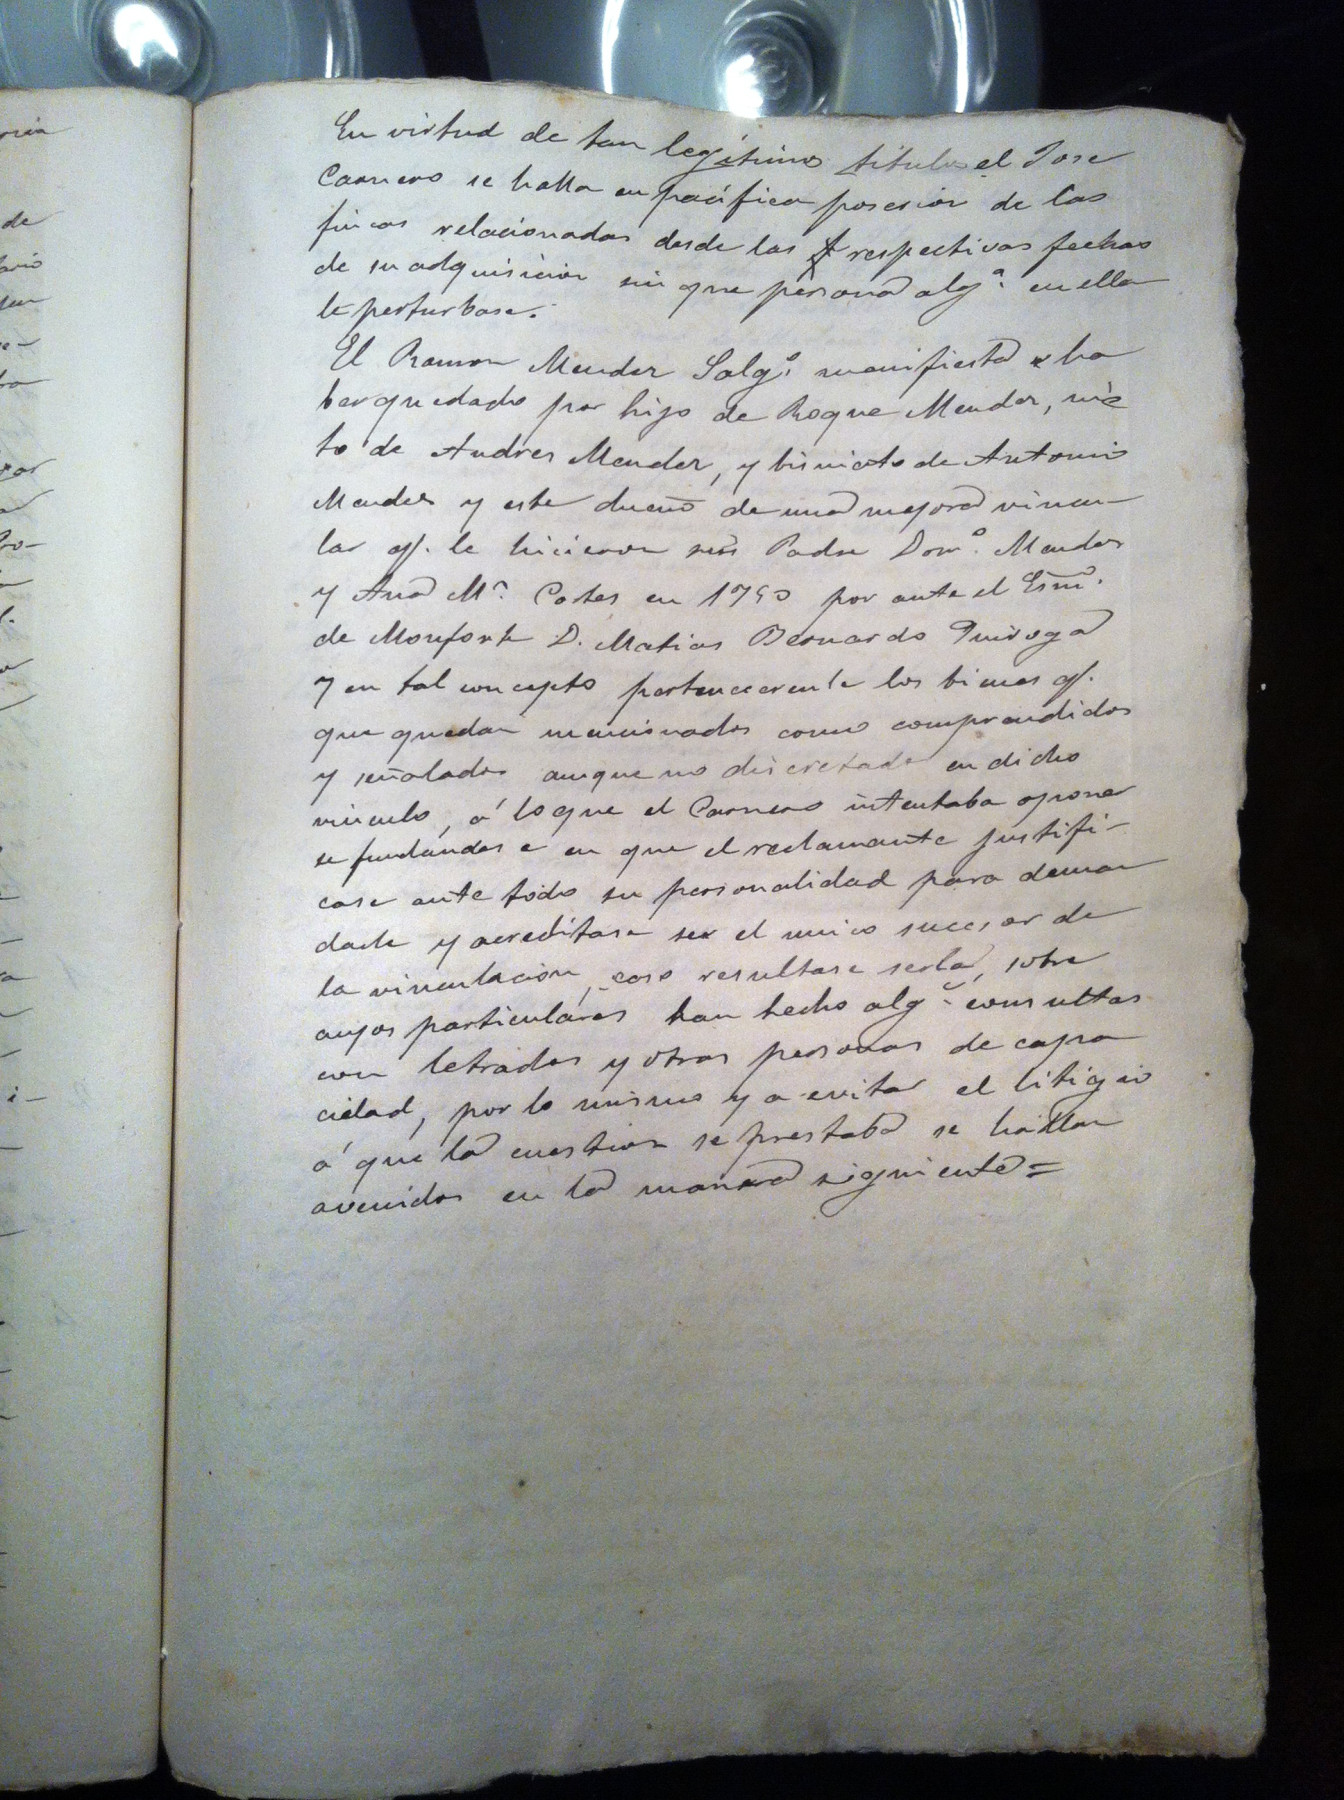 En virtud de tan legítimos titulos el Jose
Carnero se halla en pacífica posesion de las
fincas relacionadas desde las respectivas fechas
de su adquisicion sin que persona alg.ª en ella
le perturbase.
El Ramon Mendez Salg.º manifiesta ha
ber quedado por hijo de Roque Mendez, nie
to de Andres Mendez, y bisnieto de Antonio
Mendez y este dueño de una mejora vincu-
lar q. le hicieron sus Padre Dom.º Mendez
y Ana M.ª Cortes en por ante el Esno.
de Monforte D. Matias Bernardo Quiroga
y en tal concepto pertenecerente los bienes q.
que quedan mencionados como comprendidos
y señalados aunque no en dicho
vinculo, á lo que el Carnero intentaba oponer
se fundandose en que el reclamante justifi-
case ante todo su personalidad para deman
darle y acreditase ser el unico sucesor de
la vinculacion, caso resultase serla, sobre
cuyos particulares han hecho alg.s consultas
con letrados y otras personas de capa
cidad, por lo mismo y a evitar el litigio
á que la cuestion se prestaba se hallan
avenidos en la manera siguiente =
de
i-